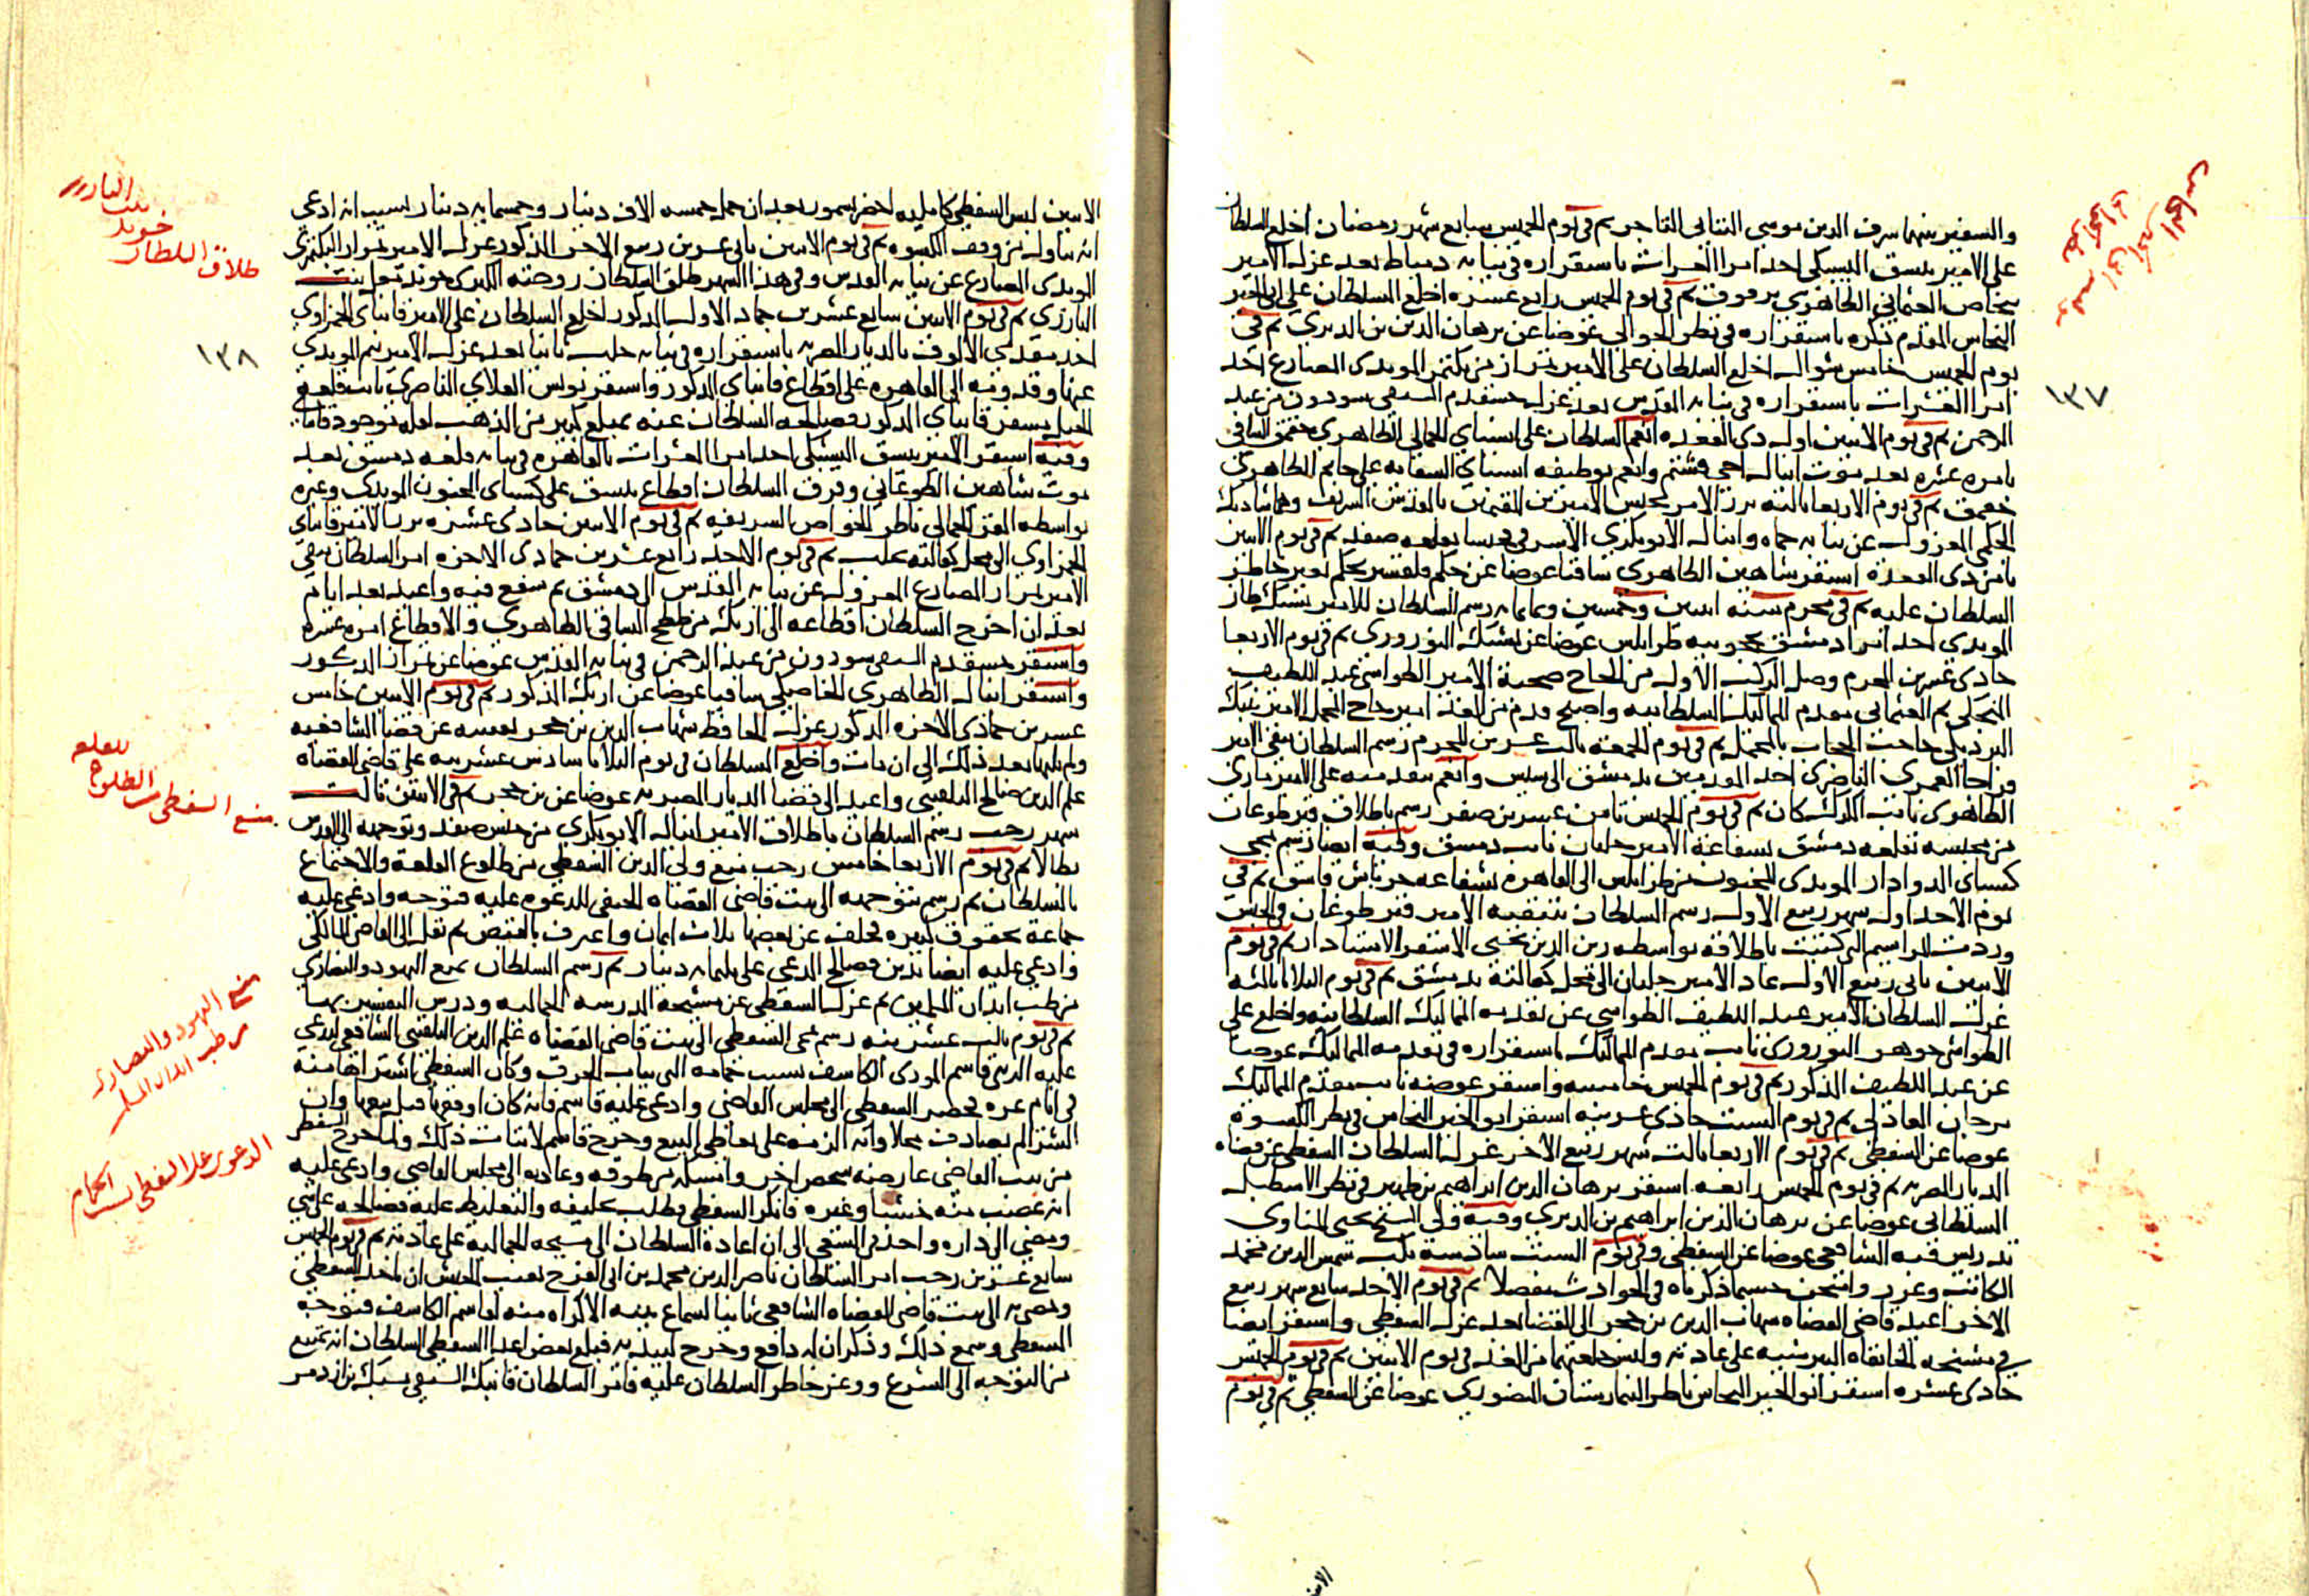 والسفير بينهما شرف الدين موسى التتائى التاجر ثم فى يوم الخميس سابع شهر رمضان اخلع السلطان
على الامير يشبك اليشبكى احد امرا العشرات باستقراره فى نيابه دمياط بعد عزل الامير
بيخاص العثمانى الظاهرى برقوق ثم فى يوم الخميس رابع عشره اخلع السلطان على ابى الخير
النحاس المقدم ذكره باستقراره فى نظر الجوالى عوضا عن برهان الدين بن الديرى ثم فى
يوم الخميس خامس شوال اخلع السلطان على الامير تمراز من بكتمر المويدى المصارع احد
امرا العشرات باستقراره فى نيابه القدس بعد عزل خشقدم السيفى سودون من عبد
الرحمن ثم فى يوم الاثنين اول ذى القعده انعم السلطان على اسنباى الجمالى الظاهرى جقمق الساقى
بامره عشره بعد موت اينال اخى قشتم وانعم بوظيفه اسنباى السقايه على جانم الظاهرى
جقمق ثم فى يوم الاربعا ثالثه برز الامر بحبس الاميرين المقيمين بالقدس الشريف وهما شادبك
الجكمى المعزول عن نيابه حماه واينال الابوبكرى الاشرفى فحبسا بقلعه صفد ثم فى يوم الاثنين
ثامن ذى القعدة استقر شاهين الظاهرى ساقيا عوضا عن جكم قلقسيز بحكم تغير خاطر
السلطان عليه ثم فى محرم سنه اثنين وخمسين وثمانمايه رسم السلطان للامير يشبك طاز
المويدى احد امرا دمشق بحجوبيه طرابلس عوضا عن يشبك النوروزى ثم فى يوم الاربعا
حادى عشرين المحرم وصل الركب الاول من الحاج صحبة الامير الطواشى عبد اللطيف
المنجكى ثم العثمانى مقدم المماليك السلطانيه واصبح قدم من الغد امير حاج المحمل الامير تنبك
البردبكى حاجب الحجاب بالمحمل ثم فى يوم الجمعه ثالث عشرين المحرم رسم السلطان بنفى الامير
قراجا العمرى الناصرى احد المقدمين بدمشق الى سيس وانعم بتقدمته على الامير مازى
الظاهرى نايب الكرك كان ثم فى يوم الخميس ثامن عشرين صفر رسم باطلاق قيز طوغان
من محبسه بقلعه دمشق بشفاعة الامير جلبان نايب دمشق وفيه ايضا رسم بمجى
كسباى الدوادار المويدى المجنون من طرابلس الى القاهرة بشفاعه جرباش قاشق ثم فى
يوم الاحد اول شهر ربيع الاول رسم السلطان بتنقيه الامير قيز طوغان فى الحبس
وردت المراسم التى كتبت باطلاقه بواسطه زين الدين يحيى الاشقر الاستادار ثم فى يوم
الاثنين ثانى ربيع الاول عاد الامير جلبان الى محل كفالته بدمشق ثم فى يوم الثلاثا ثالثه
عزل السلطان الامير عبد اللطيف الطواشى عن تقدمه المماليك السلطانيه واخلع على
الطواشى جوهر النوروزى نايب مقدم المماليك باستقراره فى تقدمه المماليك عوضا
عن عبد اللطيف المذكور ثم فى يوم الخميس خامسه واستقر عوضه نايب مقدم المماليك
مرجان العادلى ثم فى يوم السبت حادى عشرينه استقر ابو الخير النحاس فى نظر الكسوة
عوضا عن السفطى ثم فى يوم الاربعا ثالث شهر ربيع الاخر عزل السلطان السفطى عن قضاه
الديار المصريه ثم فى يوم الخميس رابعه استقر برهان الدين ابراهيم بن ظهير فى نظر الاسطبل
السلطانى عوضا عن برهان الدين ابراهيم بن الديرى وفيه ولى الشيخ يحيى المناوى
تدريس قبه الشافعى عوضا عن السفطى وفى يوم السبت سادسه نكب شمس الدين محمد
الكاتب وعزر وامتحن حسبما ذكرناه فى الحوادث مفصلا ثم فى يوم الاحد سابع شهر ربيع
الاخر اعيد قاضى القضاه شهاب الدين بن حجر الى القضا بعد عزل السفطى واستقر ايضا
فى مشيخه الخانقاه البيبرسيه على عادته ولبس خلعتهما من الغد فى يوم الاثنين ثم فى يوم الخميس
حادى عشره استقر ابو الخير النحاس ناظر البيمارستان المنصورى عوضا عن السفطى ثم فى يوم
١٣٧
الاثنين لبس السفطى كامليه اخضر بسمور بعد ان حمل خمسه الاف دينار وخمسمايه دينار بسبب انه ادعى
انه تناول من وقف الكسوه ثم فى يوم الاثنين ثانى عشرين ربيع الاخر المذكور عزل الامير تمراز البكتمرى
المويدى المصارع عن نيابه القدس وفى هذا الشهر طلق السلطان زوجته الكبرى خوند مغل بنت
البارزى ثم فى يوم الاثنين سابع عشرين جماد الاول المذكور اخلع السلطان على الامير قانباى الحمزاوى
احد مقدمى الالوف بالديار المصريه باستقراره فى نيابه حلب ثانيا بعد عزل الامير تنم المويدى
عنها وقدومه الى القاهره على اقطاع قانباى المذكور واستقر يونس العلاى الناصرى نايب قلعه
الجبل مسفر قانباى المذكور وصالحه السلطان عنه بمبلغ كبير من الذهب لعله موجود قانباى
وفيه استقر الامير بيسق اليشبكى احد امرا العشرات بالقاهره فى نيابه قلعه دمشق بعد
موت شاهين الطوغانى وفرق السلطان اقطاع بيسق على كسباى المجنون المويدى وغيره
بواسطه المقر الجمالى ناظر الخواص الشريفه ثم فى يوم الاثنين حادى عشره برز الامير قانباى
الحمزاوى الى محل كفالته بحلب ثم فى يوم الاحد رابع عشرين جمادى الاخره امر السلطان بنفى
الامير تمراز المصارع المعزول عن نيابه القدس الى دمشق ثم شفع فيه واعيد بعد ايام
بعد ان اخرج السلطان اقطاعه الى ازبك من ططخ الساقى الظاهرى والاقطاع امره عشره
واستقر خشقدم السيفى سودون من عبد الرحمن فى نيابه القدس عوضا عن تمراز المذكور
واستقر اينال الظاهرى الخاصكى ساقيا عوضا عن ازبك المذكور ثم فى يوم الاثنين خامس
عشرين جمادى الاخره المذكور عزل الحافظ شهاب الدين بن حجر نفسه عن قضا الشافعيه
ولم يلها بعد ذلك الى ان مات واخلع السلطان فى يوم الثلاثا سادس عشرينه على قاضى القضاه
علم الدين صالح البلقينى واعيد الى قضا الديار المصريه عوضا عن بن حجر ثم فى الاثنين ثالث
شهر رجب رسم السلطان باطلاق الامير اينال الابوبكرى من حبس صفد وتوجهه الى القدس
بطالا ثم فى يوم الاربعا خامس رجب منع ولى الدين السفطى من طلوع القلعة والاجتماع
بالسلطان ثم رسم بتوجهه الى بيت قاضى القضاه الحنفى للدعوه عليه فتوجه وادعى عليه
جماعة بحقوق كثيره فحلف عن بعضها ثلاث ايمان واعترف بالبعض ثم نقل الى القاضى المالكى
وادعى عليه ايضا بدين فصالح المدعى على ثلثمايه دينار ثم رسم السلطان بمنع اليهود والنصارى
من طب ابدان المسلمين ثم عزل السفطى عن مشيخه المدرسه الجماليه ودرس التفسير بها
ثم فى يوم ثالث عشرينه رسم بمجى السفطى الى بيت قاضى القضاه علم الدين البلقينى الشافعى ليدعى
عليه الزينى قاسم المودى الكاشف بسبب حمامه التى بباب الخرق وكان السفطى اشتراها منه
فى ايام عزه فحضر السفطى الى مجلس القاضى وادعى عليه قاسم فانه كان اوقفها قبل بيعها وان
الشرا لم يصادف محلا وانه الزمه على تعاطى البيع وخرج قاسم لاثبات ذلك ولما خرج السفطى
من بيت القاضى عارضه شخص اخر وامسكه من طوقه وعاد به الى مجلس القاضى وادعى عليه
انه غصب منه خشبا وغيره فانكر السفطى وطلب تحليفه والتغليظ عليه فصالحه على شى
ومضى الى داره واخذ فى السعى الى ان اعاده السلطان الى مشيخه الجماليه على عادته ثم فى يوم الخميس
سابع عشرين رجب امر السلطان ناصر الدين محمد بن ابى الفرج نقيب الجيش ان ياخذ السفطى
ويمضى به الى بيت قاضى القضاه الشافعى ثانيا لسماع بينه الاكراه منه لقاسم الكاشف فتوجه
السفطى وسمع ذلك وذكر ان له دافع وخرج ليبديه فبلغ بعض اعدا السفطى السلطان انه يمتنع
من التوجه الى الشرع ووغر خاطر السلطان عليه فامر السلطان قانبك السيفى يشبك بن ازدمر
١٣٨
طلاق السلطان
خوند
بنت البارزى
منع السفطى من الطلوع
للقلعه
منع اليهود والنصارى
من طب ابدان المسلمين
الدعوى على السفطى بسبب الحمام